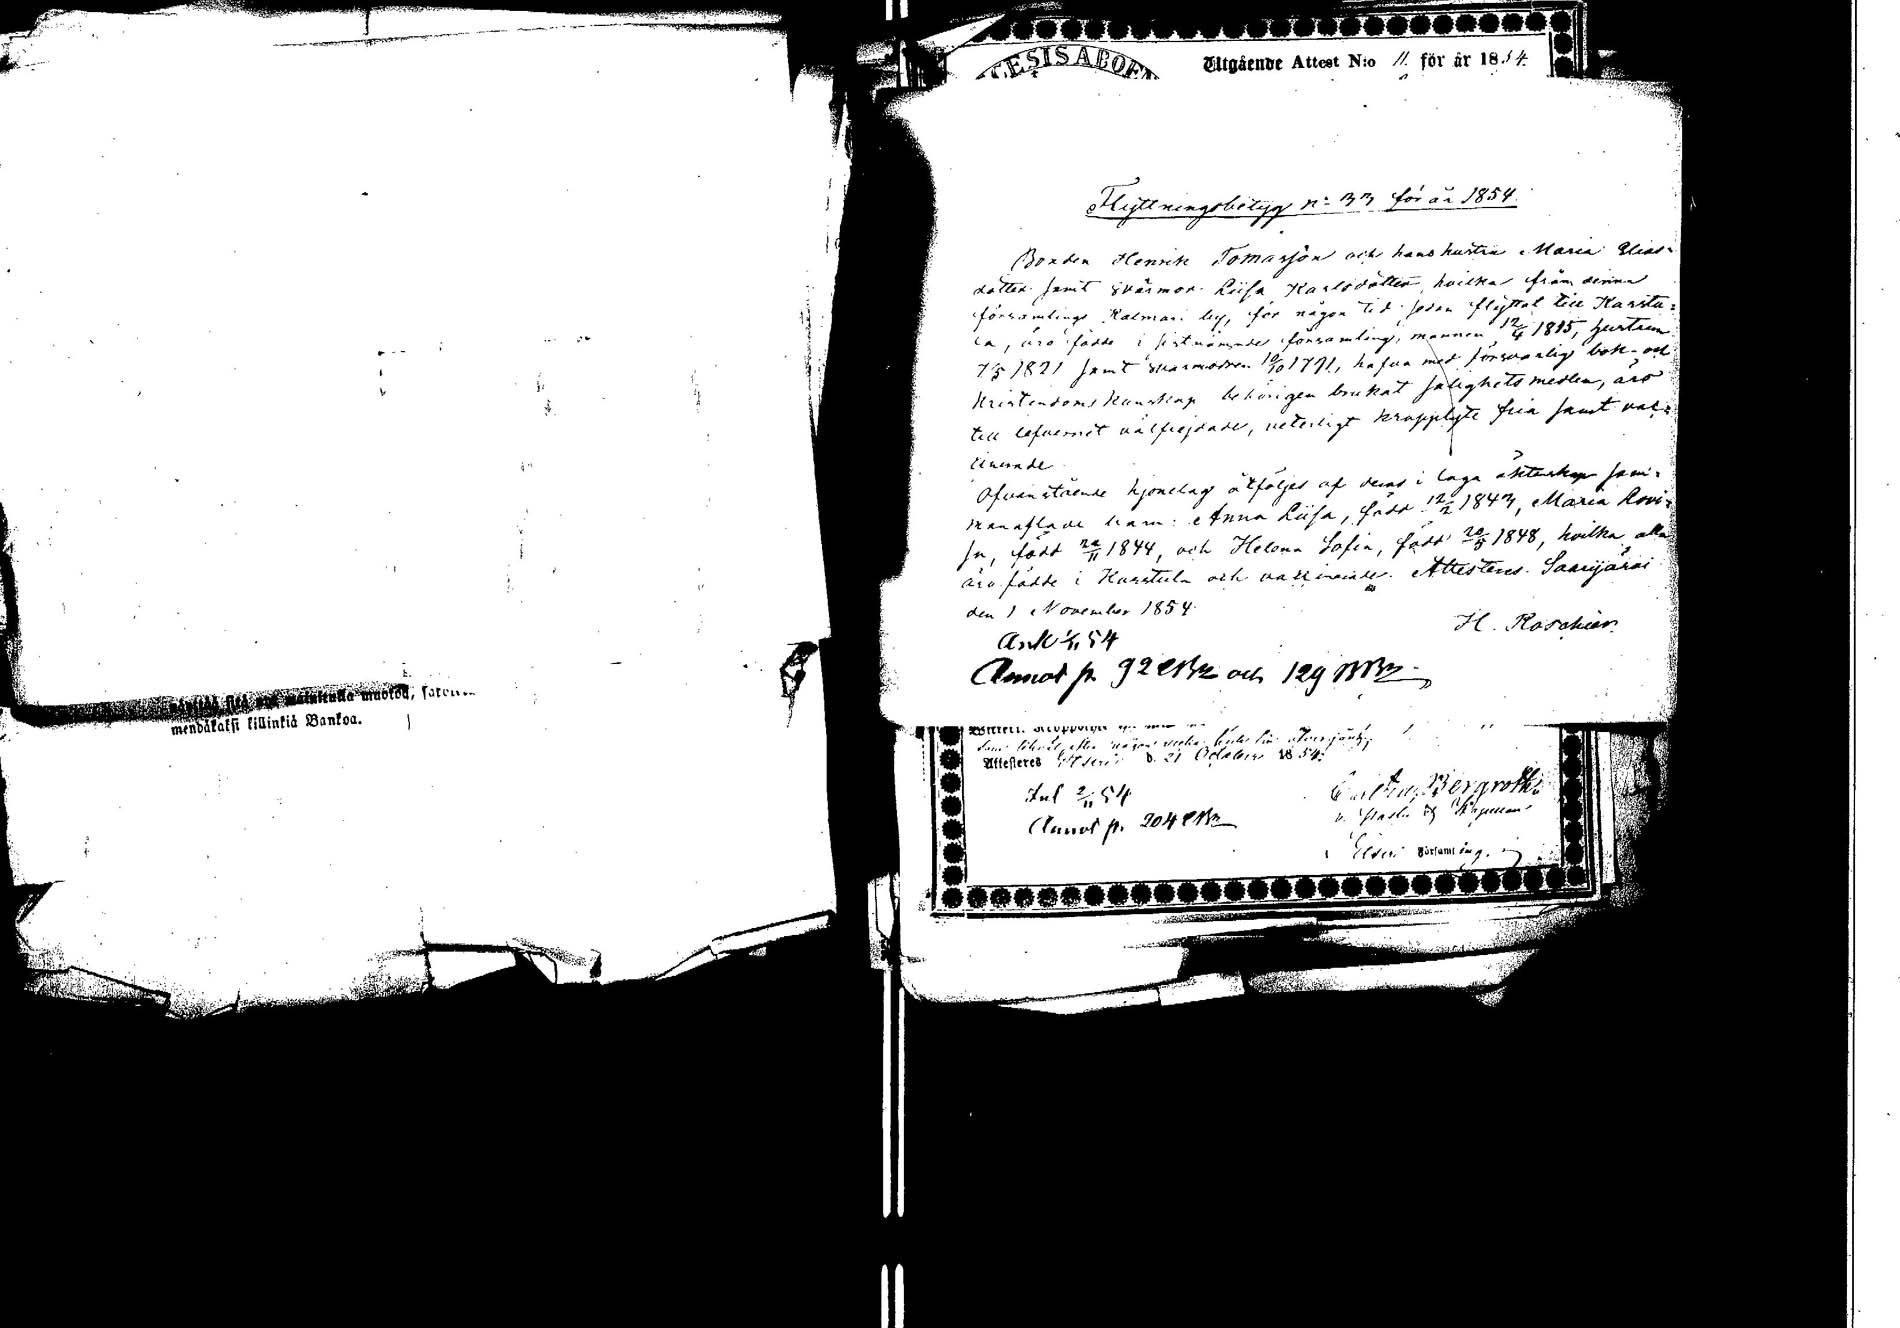 mendäkaksi killinkiä Bankoa.
DIOECESIS ABOEN
Utgående Attest N:o 11 för år 1854.
Flyttningsbetyg n: 33 för år 1854.
Bonden Henrik Tomasson och hans hustru Maria Elias-
dotter samt svärmor Liisa Karlsdotter, hvilka från denna
församlings Kalmari by, för någon tid sedan flyttat till Karstu-
la, äro födde i sistnämnde församling, mannen 12/4 1815, hustrun
7/5 1821 samt svärmodren 10/10 1791, hafva med försvarlig bok- och
Kristendoms Kunskap behörigen brukat salighetsmedlen, äro
till lefvernet välfrejdade, veterligt kropplyte fria samt vac-
cinerade.
Ofvanstående hjonelag åtföljes af deras i laga äktenskap sam-
manaflade barn: Anna Liisa, född 12/2 1843, Maria Lovi-
sa, född 22/11 1844, och Helena Sofia, född 20/5 1848, hvilka alla
äro födde i Karstula och vaccinerade. Attesteras. Saarijärvi
den 1 November 1854.
H. Roschier.
Ank 1/11 54
Annot p. 92 och 129
Attesteras Etseri d. 21 October 1854.
Inl 2/11 54
Annot p. 204
Bergroth
Etseri Församling.